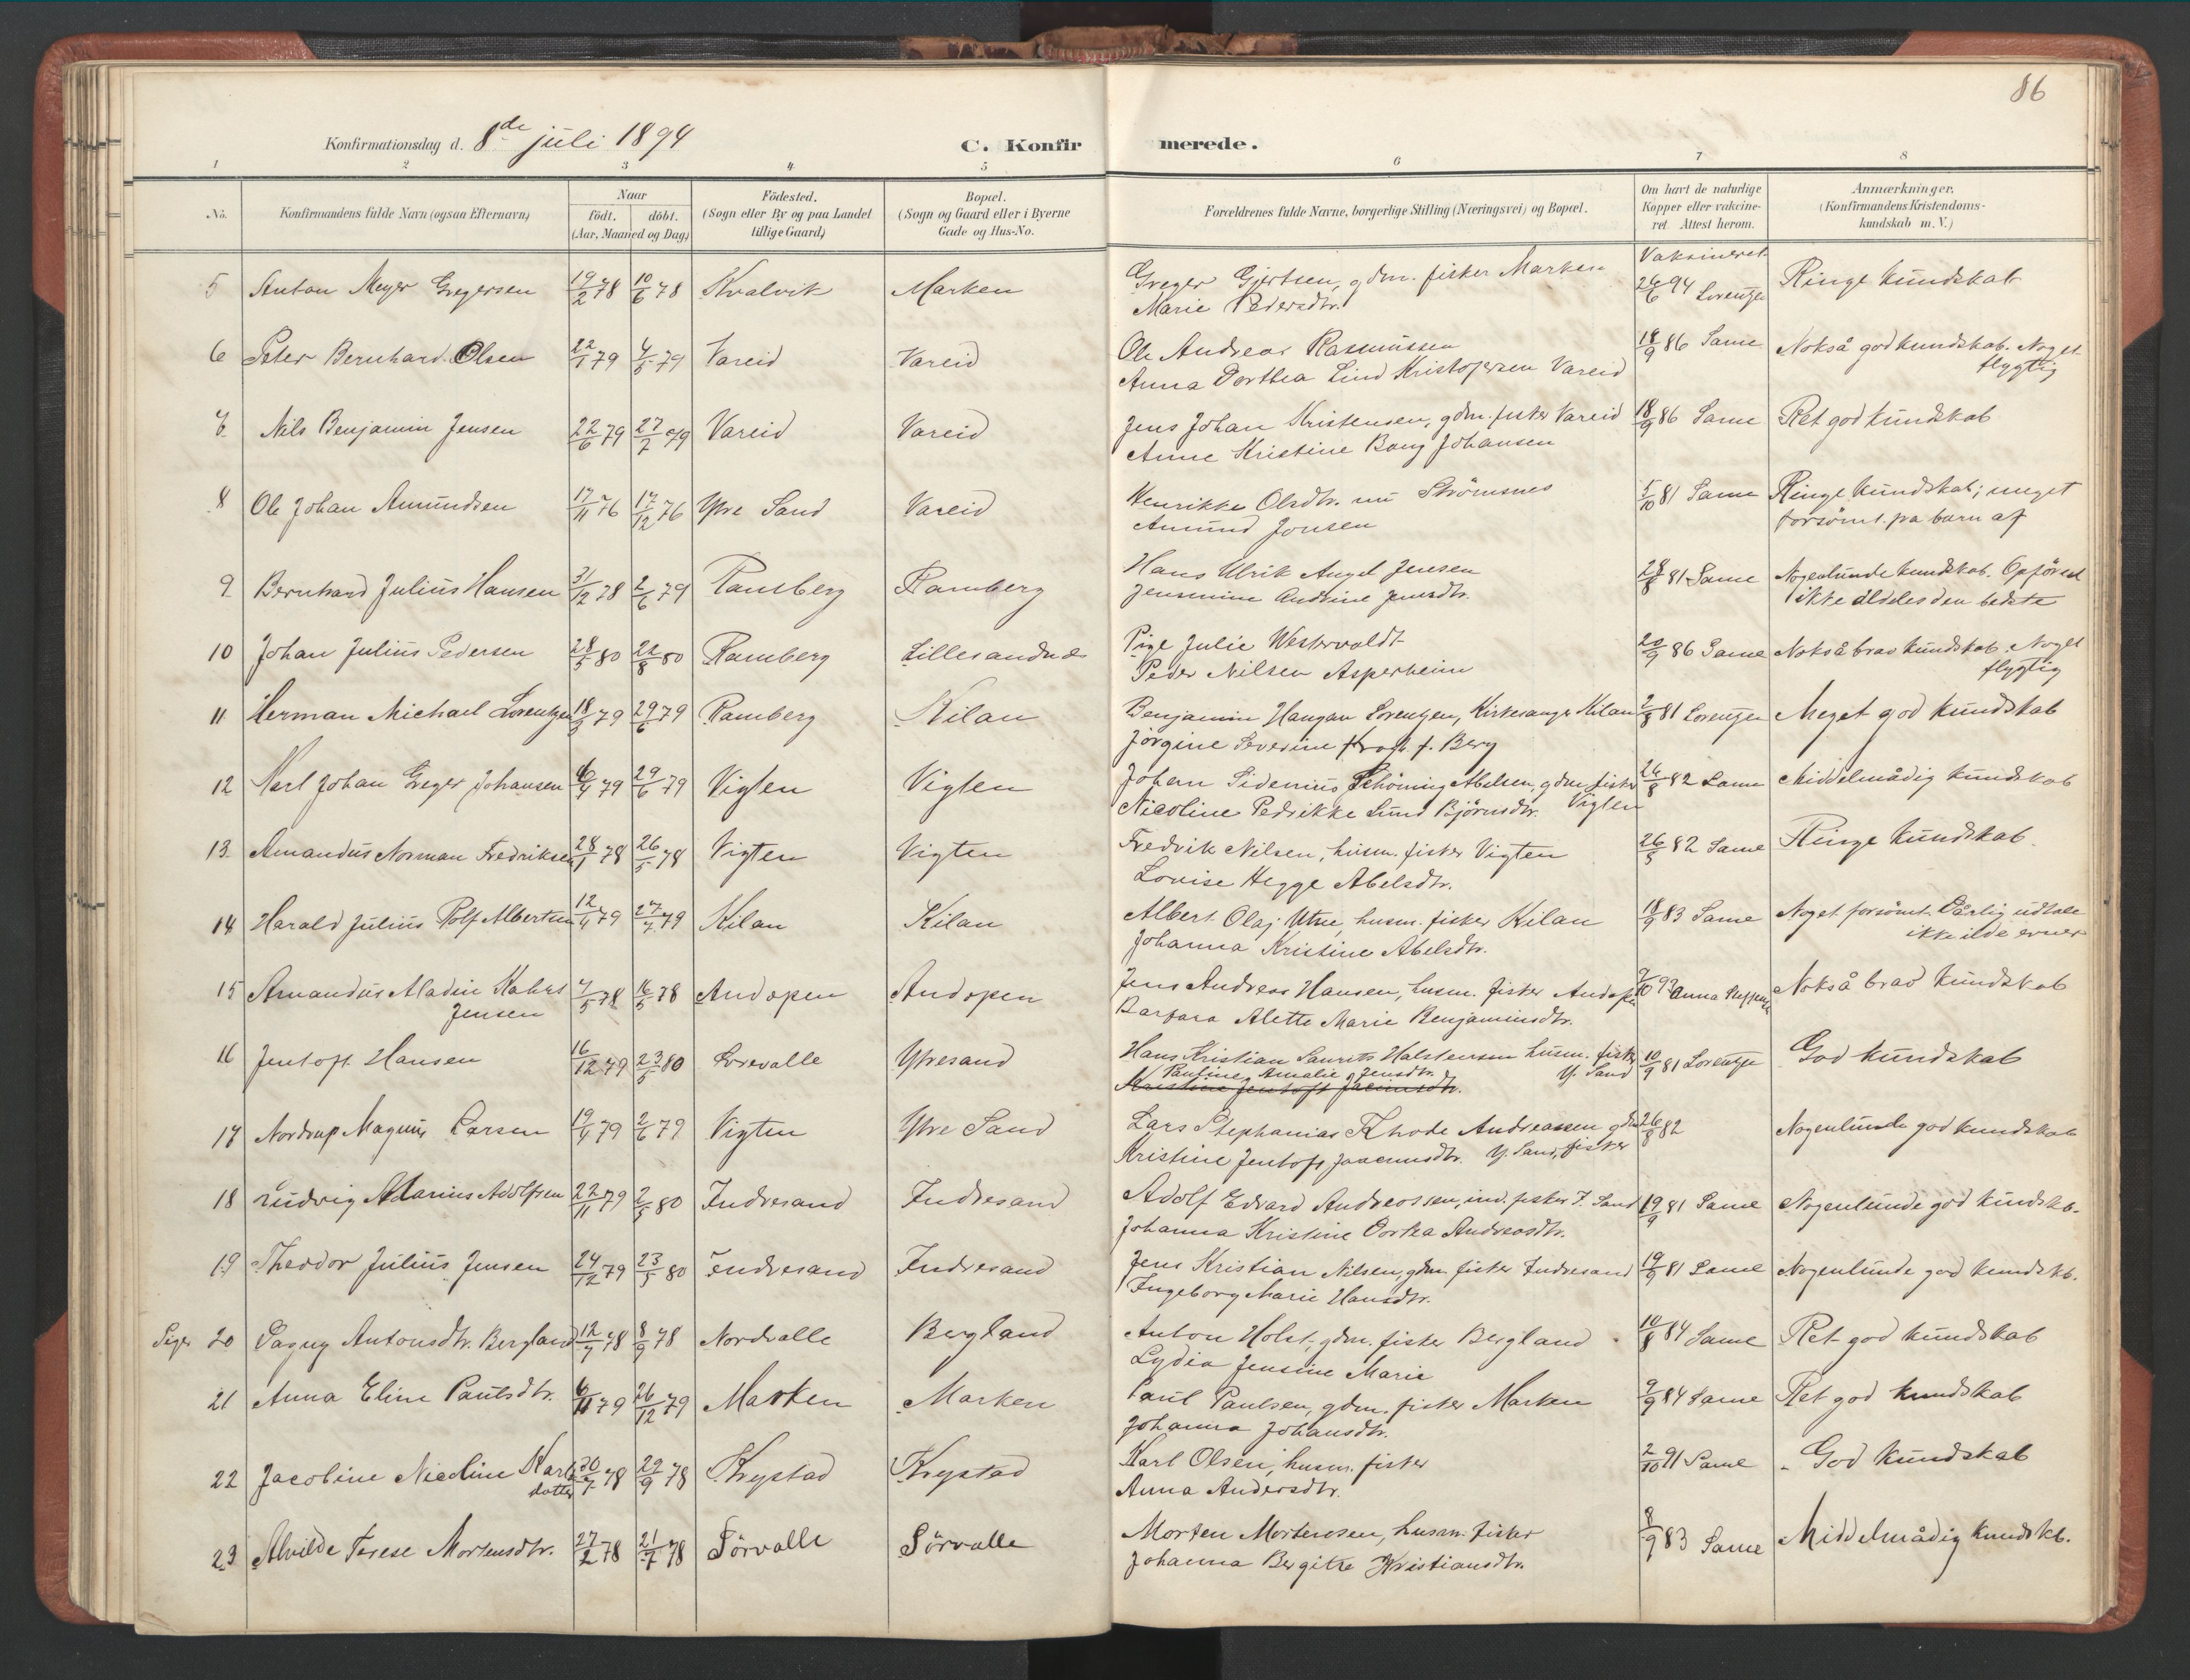 86
Konfirmationsdag d. 8de juli 1894
C. Konfirmerede.
1 2 3 4 5 6 7 8
No.
Konfirmandens fulde Navn (ogsaa Efternavn)
Naar
födt. döbt.
(Aar, Maaned og Dag)
Födested.
(Sogn eller By og paa Landet
tillige Gaard)
Bopæl.
(Sogn og Gaard eller i Byerne
Gade og Hus-No.
Forældrenes fulde Navne, borgerlige Stilling (Næringsvei) og Bopæl.
Om havt de naturlige
Kopper eller vakcine-
ret. Attest herom.
Anmærkninger.
(Konfirmandens Kristendoms-
kundskab m. V.)
Vaksineret
5 Anton Meyer Gregersen 19/2 78 10/6 78 Kvalvik Marken Greger Gjertsen, gdm. fisker Marken 26/6 94 Lorentzen Ringe kundskab
Marie Pedersdtr.
6 Peter Bernhard Olsen 22/1 79 4/5 79 Vareid Vareid Ole Andreas Rasmussen 18/9 86 Samme Nokså god kundskab. Noget
Anna Dorthea Lind Kristofersen Vareid flygtig
7 Nils Benjamin Jensen 22/6 79 27/7 79 Vareid Vareid Jens Johan Kristensen, gdm. fisker Vareid 18/9 86 Same Ret god kundskab
Anne Kristine Bang Johansen
8 Ole Johan Amundsen 17/11 76 17/12 76 Yttre Sand Vareid Henrikke Olsdtr. nu Strömsnes 5/10 81 Same Ringe kundskab; meget
Amund Jonsen forsömt fra barn af
9 Bernhard Julius Hansen 31/12 78 2/6 79 Ramberg Ramberg Hans Ulrik Angel Jensen 28/8 81 Same Nogenlunde kundskab. Opförsel
Jensmine Andrine Jensdtr. ikke aldeles den bedste
10 Johan Julius Pedersen 28/5 80 22/8 80 Ramberg Lillesandnes Pige Julie Westervaldt 20/9 86 Same Nokså brav kundskab. Noget
Peder Nilsen Asperheim flygtig
11 Herman Michael Lorentzen 18/3 79 29/6 79 Ramberg Kilan Benjamin Haugan Lorentzen, Kirkesanger Kilan 2/8 81 Lorentzen Meget god kundskab
Jörgine Severine f. Berg
12 Karl Johan Greger Johansen 6/4 79 29/6 79 Vigten Vigten Johan Sidenius Schöning Abelsen, gdm. fisker 26/8 82 Same Middelmådig kundskab
Nicoline Pedrikke Lund Björnsdtr. Vigten
13 Amandus Norman Fredriksen 28/1 78 26/5 78 Vigten Vigten Fredrik Nilsen, husm. fisker Vigten 26/5 82 Same Ringe kundskab.
Lovise Hegge Abelsdtr.
14 Harald Julius Rolf Albertsen 12/4 79 27/7 79 Kilan Kilan Albert Olaj Utne, husm. fisker Kilan 18/9 83 Same Noget forsömt. Dårlig udtale
Johanna Kristine Abelsdtr. ikke ilde evner
15 Amandus Madin Kahrs 4/5 78 16/5 78 Andopen Andopen Jens Andreas Hansen, husm. fisker Andopen 7/10 93 Anna Nokså brav kundskab
Jensen Barbara Alette Marie Benjaminsdtr.
16 Jentoft Hansen 16/12 79 23/5 80 Yttresand Hans Kristian Laurits Halstensen husm. fisker 10/9 81 Lorentzen God kundskab
Pauline Amalie Jensdtr. Y. Sand
Kristine Jentoft Jacimsdtr.
17 Nordrup Magnus Larsen 19/4 79 2/6 79 Vigten Yttre Sand Lars Stephanias Rhode Andreassen gdm 26/8 82 Nogenlunde god kundskab
Kristine Jentoft Joacimsdtr. Y. Sand, fisker
18 Ludvig Marius Adolfsen 22/11 79 2/5 80 Indresand Indresand Adolf Edvard Andreassen, ind. fisker I. Sand 19/9 81 Same Nogenlunde god kundskb.
Johanna Kristine Dorthea Andreasdtr.
19 Theodor Julius Jensen 24/12 79 23/5 80 Indresand Indresand Jens Kristian Nilsen, gdm. fisker Indresand 19/9 81 Same Nogenlunde god kundskb.
Ingeborg Marie Hansdtr.
Piger 20 Dagny Antonsdtr. Bergland 12/7 78 8/9 78 Nordvalle Bergland Anton Holst, gdm. fisker Bergland 10/8 84 Same Ret god kundskab
Lydia Jensine Marie
21 Anna Eline Paulsdtr. 6/11 79 26/12 79 Marken Marken Paul Paulsen, gdm. fisker Marken 9/9 84 Same Ret god kundskab
Johanna Johansdtr.
22 Jacobine Nicoline Karls 30/7 78 29/9 78 Krystad Krystad Karl Olsen, husm. fisker 2/10 91 Same God kundskab
datter Anna Andersdtr.
23 Alvilde Terese Mortensdtr. 27/2 78 21/7 78 Sörvalle Sörvalle Morten Mortensen, husm. fisker 8/9 83 Same Middelmådig kundskb.
Johanna Bergitte Kristiansdtr.